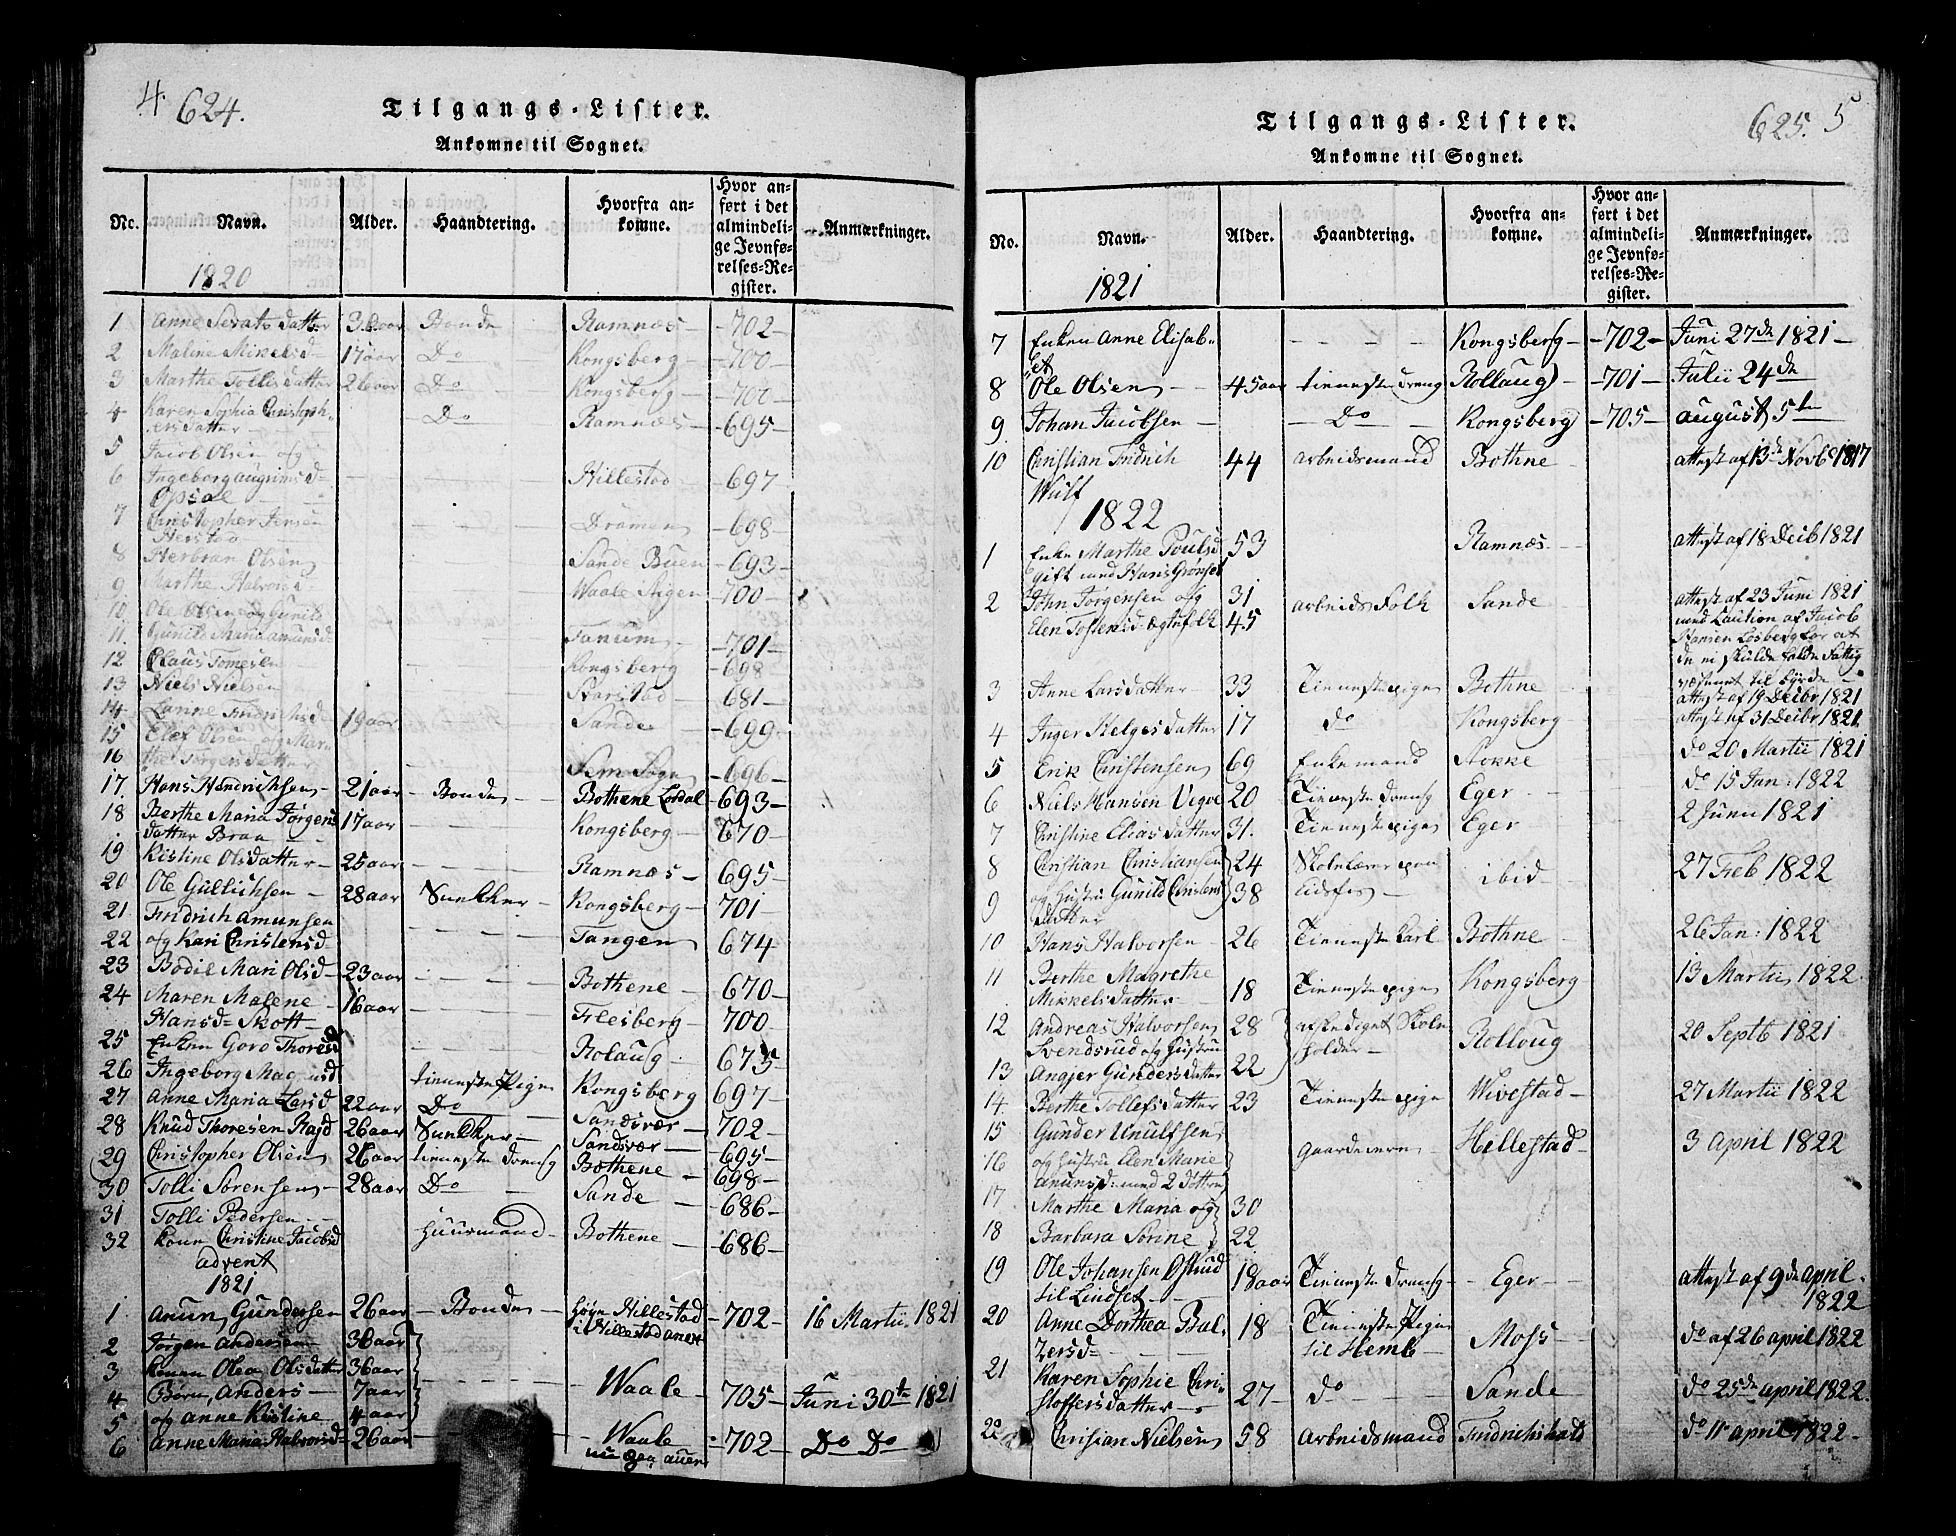 4. 624.
Tilgangs-Lister.
Ankomne til Sognet.
No. Navn. Alder. Haandtering. Hvorfra ankomne. Hvor anført i det almindelige Jevnførelses-Register. Anmærkninger.
1820
1 Anne Datter 30aar Bonde Ramnæs 702
2 Maline Mikelsd 17aar Do Kongsberg 700
3 Marthe Tollisdatter 26aar Do Kongsberg 700
4 Karen Sophia Christoph
ersdatter Do Ramnæs 695
5 Jacob Olsen og
6 Ingeborg augrimsd Hillestad 697
Opsal
7 Christopher Jensen Dramen 698
8 Herbran Olsen Sande Buen 693
9 Marthe Halvorsd Waale 700
10 Ole Olsen og Gunild
11 Gunild Maria amunsd Tanum 701
12 Claus Tomesen Kongsberg 698
13 Niels Nielsen 681
14 Fridrichsd 19aar Sande 699
15 Elef Olsen og Mar
16 the Jørgensdatter Sem Sogn 696
17 Hans Hendrichsen 21aar Bonde Bothene 693
18 Berthe Maria Jørgens
datter Braa 17aar Kongsberg 670
19 Kistine Olsdatter 25aar Ramnæs 695
20 Ole Gullichsen 28aar Kongsberg 701
21 Fridrich Amunsen
22 og Kari Christensd Tangen 674
23 Bodil Mari Olsd 23aar Bothene 670
24 Maren Malene 16aar Flesberg 700
Hansd Skott
25 Enken Goro Thoresd Rolaug 673
26 Ingeborg tieneste Pige Kongsberg 697
27 Anne Maria Larsd 22aar Do Sandsvær 702
28 Knud Thoresen 26aar Sandsvær 695
29 Christopher Olsen 26aar tieneste dreng Bothene 698
30 Tolli Sørensen 28aar Do Sande 686
31 Tolli Pedersen
32 kone Christine Jacobsd Huusmand Bothene 686
advent
1821
1 Amun Gundersen 26aar Bonde Hillestad 702 16 Martii 1821
i Hillestad
2 Jørgen Andersen 38aar
3 konen Olea Olsdatter 36aar
4 Børn, Anders 7aar Waale 705 Juni 30te 1821
5 og anne Kistine 4aar
6 Anne Maria Halvorsd 26aar Waale 702 Do Do
625. 5
Tilgangs-Lister.
Ankomne til Sognet.
No. Navn. Alder. Haandtering. Hvorfra ankomne. Hvor anført i det almindelige Jevnførelses-Register. Anmærkninger.
1821
7 Enken Anne Elisab Kongsberg 702 Juni 27de 1821
et
8 Ole Olsen 45aar tieneste dreng Rollaug 701 Julii 24de
9 Johan Jacobsen Do Kongsberg 705 august 5te
10 Christian Fridrich 44 arbeidsmand Bothne attest af 13de Novb 1817
Wulf
1822
1 Enke Marthe Poulsd 53 Ramnæs attest af 18 Decb 1821
gift med Hans Grønset
2 John Jørgensen og 31 arbeids Folk Sande attest af 23 Juni 1821
Elen Tostensd Ægtefolk 45 med Caution af Jacob
Hansen for at
de ei skulde falde Fattig
væsenet til byrde
3 Anne Larsdatter 33 Tienestepige Bothne attest af 19 Decbr 1821
4 Inger Helgesdatter 17 do Kongsberg attest af 31 Decbr 1821
5 Erik Christensen 69 Enkemand do 20 Martii 1821
6 Niels Hansen 20 Tieneste dreng Eger do 15 Jan: 1822
7 Christine Eliasdatter 31. Tieneste pige Eger 2 1821
8 Christian Christiansen 24 Skolelærer ibid 27 Feb 1822
9 og Hustru Gunild Christens 38
datter
10 Hans Halvorsen 26 Tieneste Karl Bothne 26 Jan: 1822
11 Berthe Magrethe
Mikkelsdatter 18 Tieneste pige Kongsberg 13 Martii 1822
12 Andreas Halvorsen 28 afskediget Skole
Svendsrud og Hustru holder Rolloug 20 Septb 1821
13 Angjer Gundersdatter 22
14 Berthe Tollefsdatter 23 Tieneste pige Wivestad 27 Martii 1822
15 Gunder Unulfsen
16 og Hustru Elen Marie Hellestad 3 April 1822
Amunsd: med 2 Døttre
17 Marthe Maria og 30
18 Barbara Sørine 22
19 Ole Johansen 18aar Tieneste dreng Eger attest af 9de April
til Lindset 1822
20 Anne Dorthea Bal 18 Tieneste Pige
zersd til Hemb Moss do af 26 april 1822
21 Karen Sophie Chri
stoffersdatter 27 do Sande do 25de april 1822.
22 Chrisian Nielsen 58 Arbeidsmand Fridrichshald do 11te april 1822